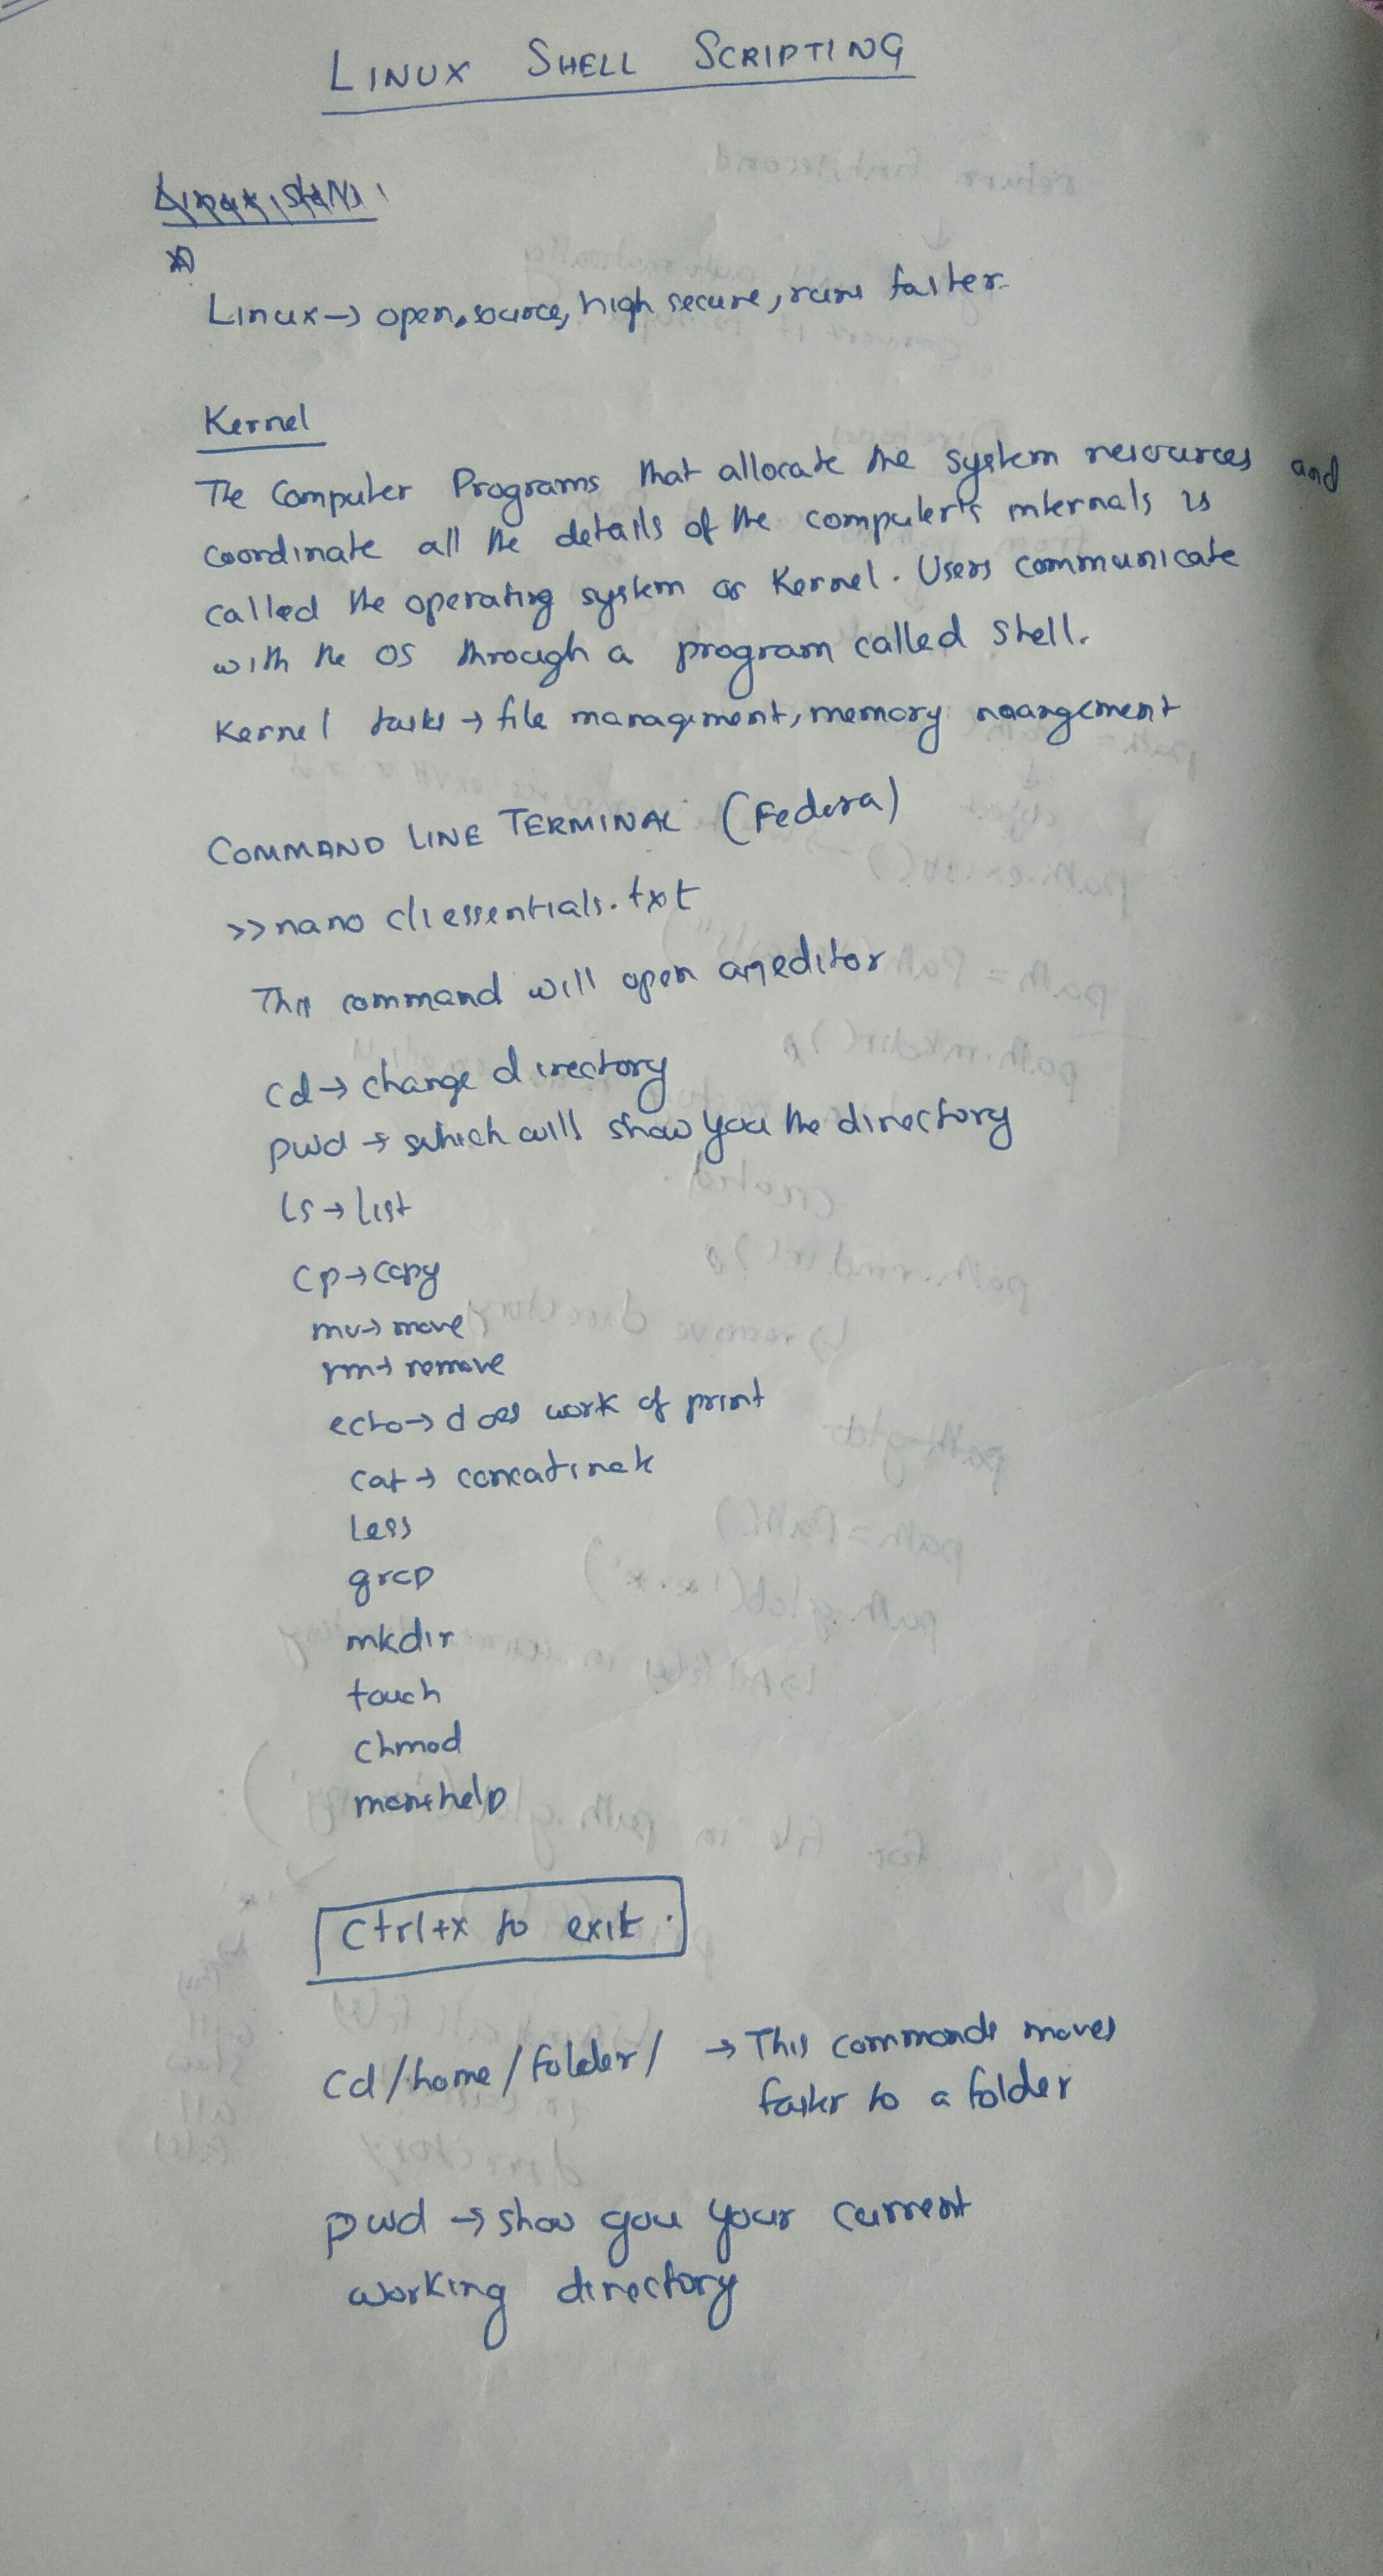 LINUX SHELL SCRIPTING
Linux → open source, high secure, runs faster.
Kernel
The Computer Programs that allocate the system resources and
coordinate all the details of the computer's internals is
called the operating system or Kernel. Users communicate
with the OS through a program called shell.
Kernel tasks → file managment, memory naangement
COMMAND LINE TERMINAL (Fedora)
>> nano cliessentials.txt
This command will open an editor
cd → change directory
pwd → which will show you the directory
ls → list
cp → copy
mv → move
rm → remove
echo → does work of print
cat → concatinate
less
grep
mkdir
touch
chmod
man+help
Ctrl+x to exit.
cd/home/folder/ → This commands moves
faster to a folder
pwd → show you your current
working directory